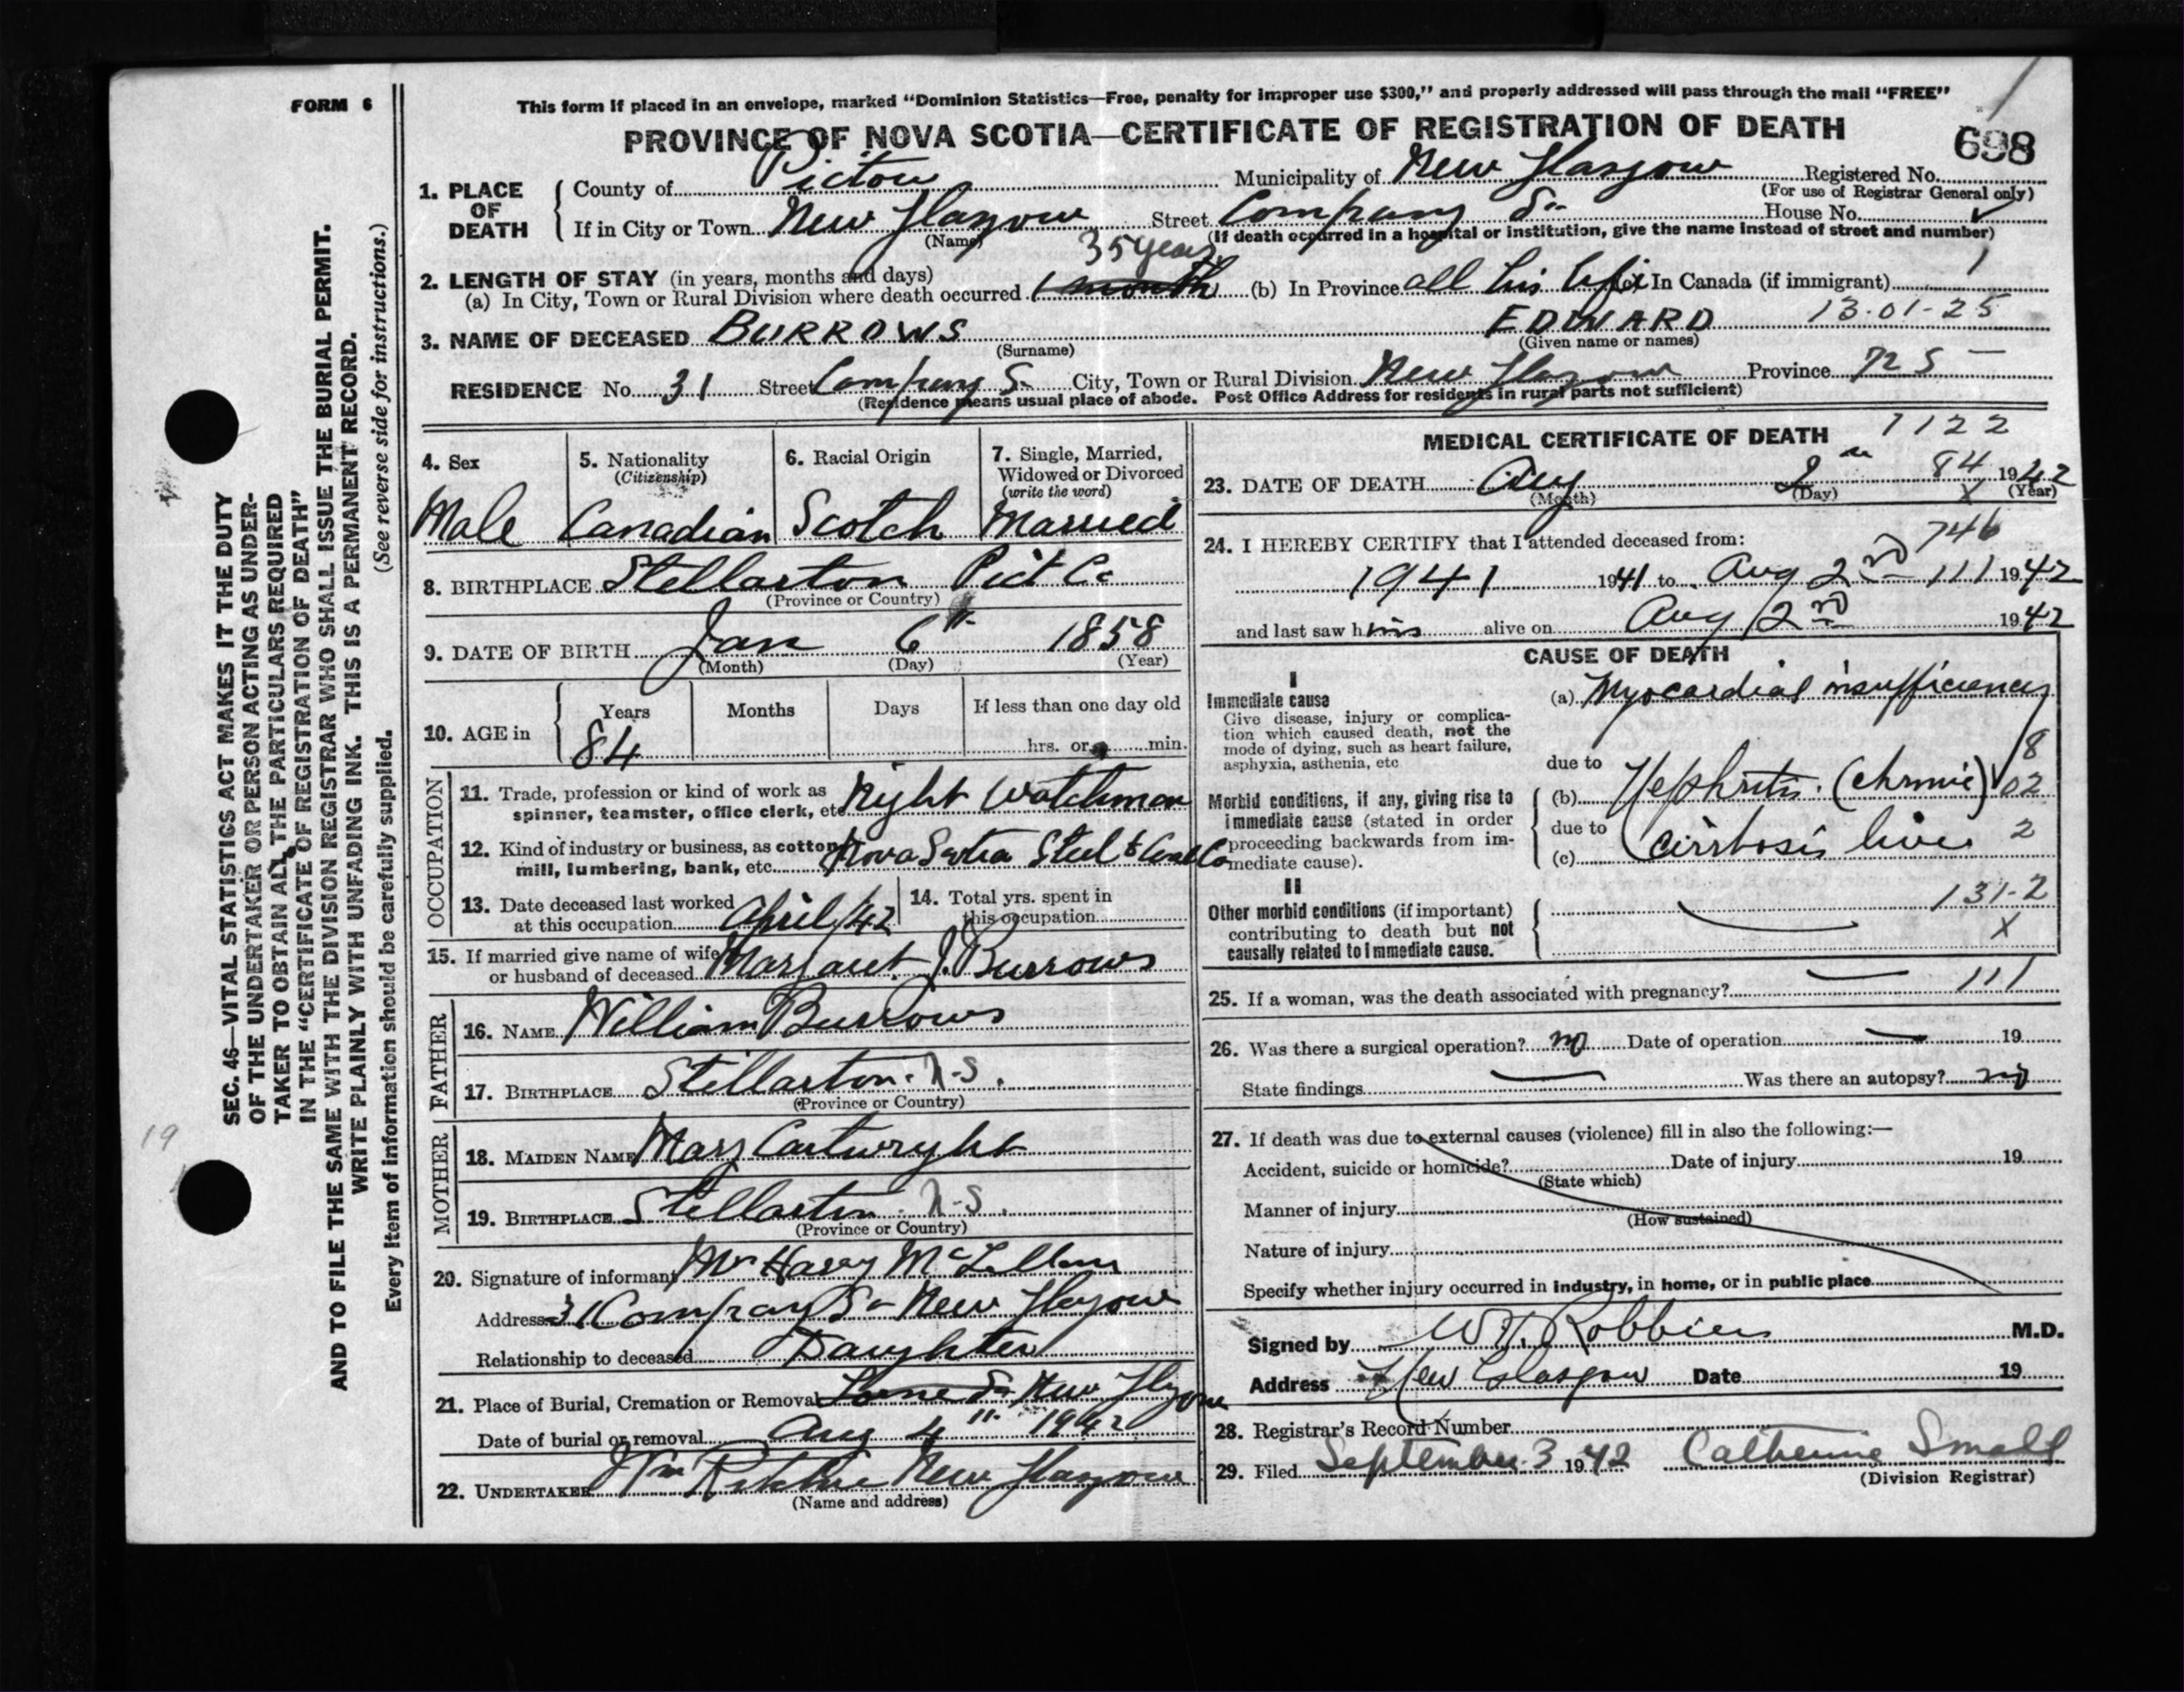 FORM 6
This form if placed in an envelope, marked "Dominion Statistics—Free, penalty for improper use $300," and properly addressed will pass through the mail "FREE"
PROVINCE OF NOVA SCOTIA—CERTIFICATE OF REGISTRATION OF DEATH
698
1. PLACE OF DEATH
County of Pictou Municipality of New Glasgow Registered No.
(For use of Registrar General only)
If in City or Town New Glasgow Street Company St House No.
(Name) (If death occurred in a hospital or institution, give the name instead of street and number)
35 years
2. LENGTH OF STAY (in years, months and days)
(a) In City, Town or Rural Division where death occurred 1 month (b) In Province all his life In Canada (if immigrant)
3. NAME OF DECEASED BURROWS EDWARD 13-01-25
(Surname) (Given name or names)
RESIDENCE No. 31 Street Company St City, Town or Rural Division New Glasgow Province NS
(Residence means usual place of abode. Post Office Address for residents in rural parts not sufficient)
4. Sex 5. Nationality (Citizenship) 6. Racial Origin 7. Single, Married, Widowed or Divorced (write the word)
Male Canadian Scotch Married
8. BIRTHPLACE Stellarton Pict Co
(Province or Country)
9. DATE OF BIRTH Jan 6" 1858
(Month) (Day) (Year)
10. AGE in Years Months Days If less than one day old
84 hrs. or min.
OCCUPATION
11. Trade, profession or kind of work as spinner, teamster, office clerk, etc Night Watchman
12. Kind of industry or business, as cotton mill, lumbering, bank, etc. Nova Scotia Steel & Coal Co
13. Date deceased last worked at this occupation April/42
14. Total yrs. spent in this occupation
15. If married give name of wife or husband of deceased Margaret J. Burrows
FATHER
16. NAME William Burrows
17. BIRTHPLACE Stellarton. N-S.
(Province or Country)
MOTHER
18. MAIDEN NAME Mary Cartwryht
19. BIRTHPLACE Stellarton. N-S.
(Province or Country)
20. Signature of informant Mrs Harry McLellan
Address 31 Company St New Glasgow
Relationship to deceased Daughter
21. Place of Burial, Cremation or Removal Lorne St New Glasgow
Date of burial or removal Aug 4" 1942
22. UNDERTAKER Wm Ritchie New Glasgow
(Name and address)
MEDICAL CERTIFICATE OF DEATH 7122
84
23. DATE OF DEATH Aug 2 1942
(Month) (Day) X (Year)
746
24. I HEREBY CERTIFY that I attended deceased from:
1941 1941 to Aug 2nd 111 1942
and last saw him alive on Aug 2nd 1942
CAUSE OF DEATH
I
Immediate cause
Give disease, injury or complication which caused death, not the mode of dying, such as heart failure, asphyxia, asthenia, etc
(a) Myocardial insufficiency
due to
8
Morbid conditions, if any, giving rise to immediate cause (stated in order proceeding backwards from immediate cause).
(b) Nephritis. (chronic) 02
due to
(c) cirrhosis liver 2
II
131-2
Other morbid conditions (if important) contributing to death but not causally related to immediate cause.
X
25. If a woman, was the death associated with pregnancy? — 111
26. Was there a surgical operation? no Date of operation — 19
State findings — Was there an autopsy? no
27. If death was due to external causes (violence) fill in also the following:—
Accident, suicide or homicide? Date of injury 19
(State which)
Manner of injury
(How sustained)
Nature of injury
Specify whether injury occurred in industry, in home, or in public place
Signed by Robbins M.D.
Address New Glasgow Date 19
28. Registrar's Record Number
29. Filed September 3 1942 Catherine Small
(Division Registrar)
SEC. 46—VITAL STATISTICS ACT MAKES IT THE DUTY
OF THE UNDERTAKER OR PERSON ACTING AS UNDER-
TAKER TO OBTAIN ALL THE PARTICULARS REQUIRED
IN THE "CERTIFICATE OF REGISTRATION OF DEATH"
AND TO FILE THE SAME WITH THE DIVISION REGISTRAR WHO SHALL ISSUE THE BURIAL PERMIT.
WRITE PLAINLY WITH UNFADING INK. THIS IS A PERMANENT RECORD.
Every item of information should be carefully supplied. (See reverse side for instructions.)
19